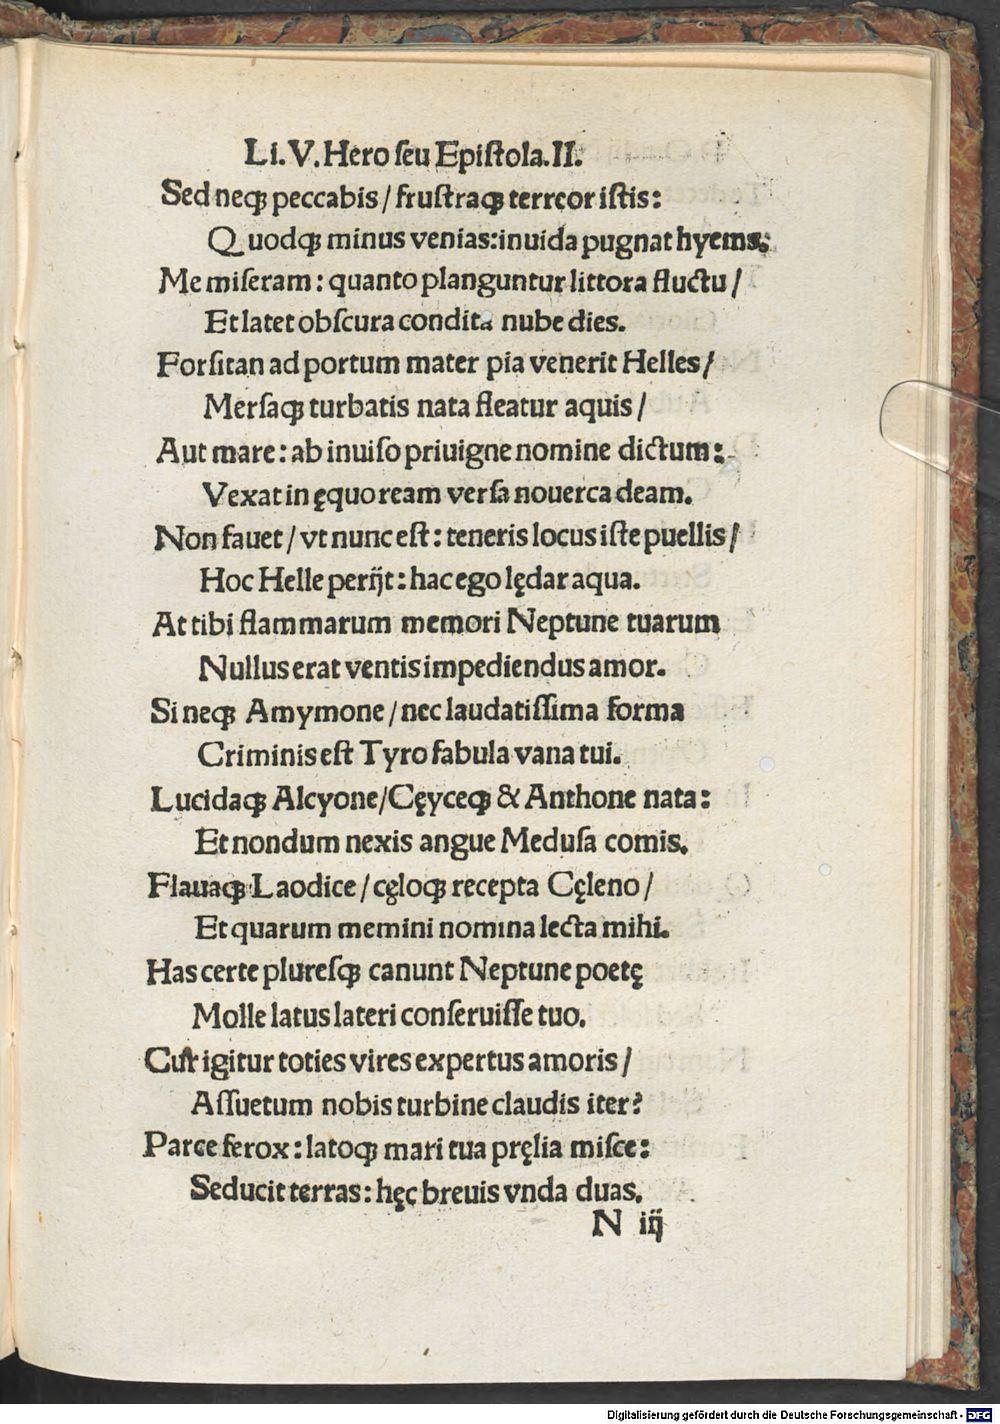 Li.V.Hero seu Epistola.II.
Sed neqꝫ peccabis / frustraqꝫ terreor istis:
Quodqꝫ minus venias: inuida pugnat hyems.
Me miseram: quanto planguntur littora fluctu /
Et latet obscura condita nube dies.
Forsitan ad portum mater pia venerit Helles /
Mersaqꝫ turbatis nata fleatur aquis /
Aut mare: ab inuiso priuigne nomine dictum:
Vexat in ęquoream versa nouerca deam.
Non fauet / vt nunc est: teneris locus iste puellis /
Hoc Helle perijt: hac ego lędar aqua.
At tibi flammarum memori Neptune tuarum
Nullus erat ventis impediendus amor.
Si neqꝫ Amymone / nec laudatissima forma
Criminis est Tyro fabula vana tui.
Lucidaqꝫ Alcyone/Cęyceqꝫ & Anthone nata:
Et nondum nexis angue Medusa comis.
Flauaqꝫ Laodice / cęloqꝫ recepta Cęleno /
Et quarum memini nomina lecta mihi.
Has certe pluresqꝫ canunt Neptune poetę
Molle latus lateri conseruisse tuo.
Cur igitur toties vires expertus amoris /
Assuetum nobis turbine claudis iter?
Parce ferox: latoqꝫ mari tua pręlia misce:
Seducit terras: hęc breuis vnda duas.
N iij
Digitalisierung gefördert durch die Deutsche Forschungsgemeinschaft - DFG